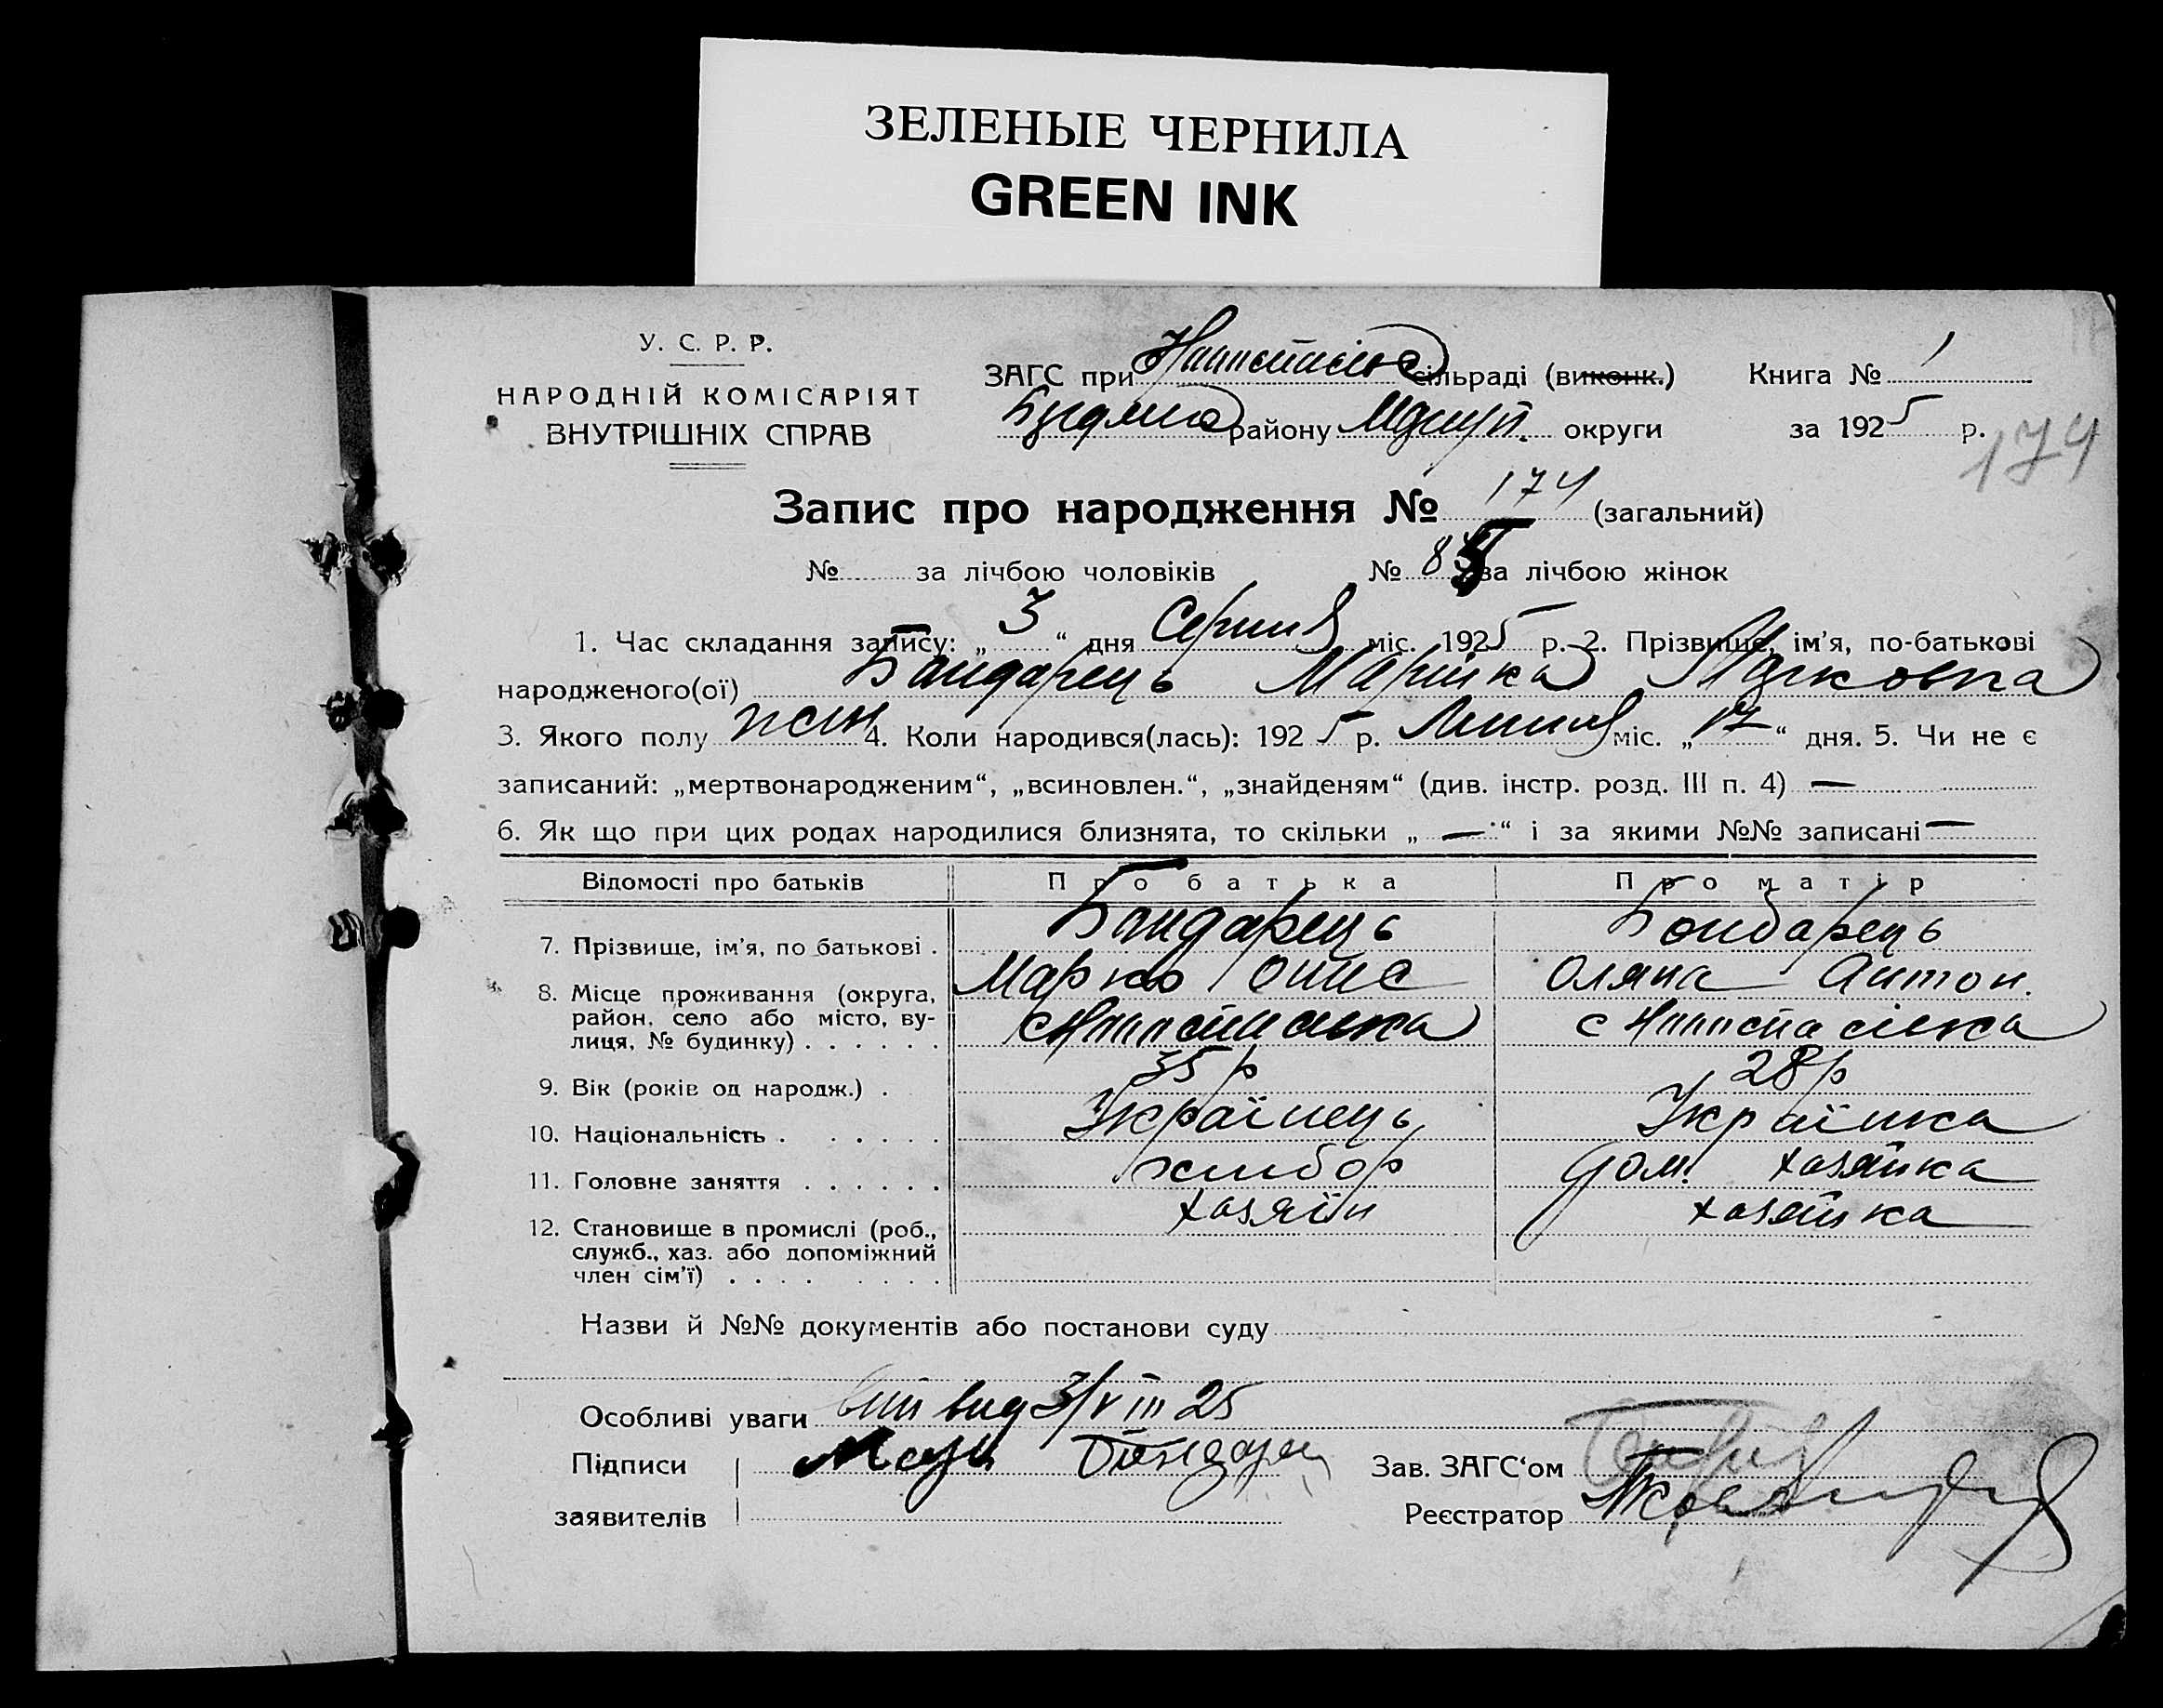 ЗЕЛЕНЫЕ ЧЕРНИЛА
GREEN INK
У. С. Р. Р.
НАРОДНІЙ КОМІСАРІЯТ
ВНУТРІШНІХ СПРАВ
ЗАГС при сільраді (виконк.) Книга № 1
району округи за 1925 р.
174
Запис про народження № 174 (загальний)
№ за лічбою чоловіків № за лічбою жінок
1. Час складання запису: „3“ дня Серпня міс. 1925 р. 2. Прізвище, ім’я, по-батькові
народженого(ої) Бандарець Марійка Марковна
3. Якого полу жін 4. Коли народився(лась): 1925 р. Липня міс. „17“ дня. 5. Чи не є
записаний: „мертвонародженим“, „всиновлен.“, „знайденям“ (див. інстр. розд. III п. 4) —
6. Як що при цих родах народилися близнята, то скільки „—“ і за якими №№ записані —
Відомості про батьків Про батька Про матір
7. Прізвище, ім’я, по батькові . Бандарець Бондарець
Марко Оляна Антон.
8. Місце проживання (округа,
район, село або місто, ву-
лиця, № будинку) . . . . . .
9. Вік (років од народж.) . 35 р 28 р
10. Національність . . . . . . Українець Українка
11. Головне заняття . . . . . . хлібор дом. хазяйка
12. Становище в промислі (роб., хазяїн хазяйка
служб., хаз. або допоміжний
член сім’ї) . . . . . . . .
Назви й №№ документів або постанови суду
Особливі уваги вид 3/VIII 25
Підписи Зав. ЗАГС‘ом
заявителів Реєстратор